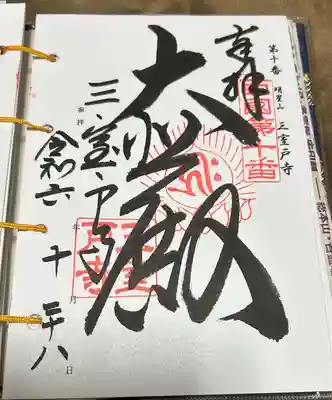 奉拝
第十番 明星山 三室戸寺
西国第十番
大悲殿
三室戸寺
令和六年十月二十八日